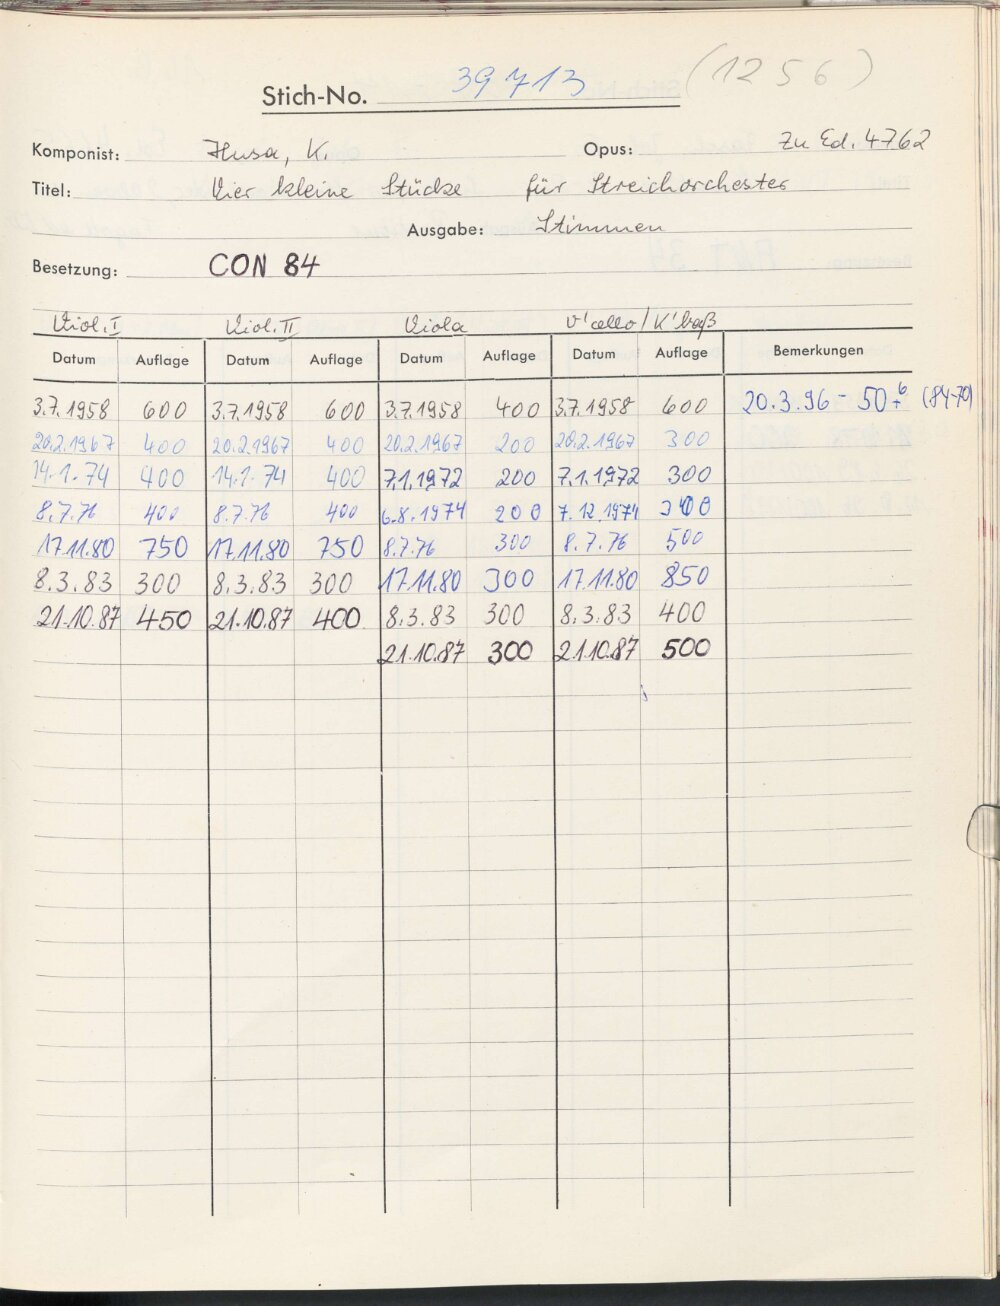 Stich-No. 39713 (1256)
Komponist: Husa, K. Opus: Zu Ed. 4762
Titel: Vier kleine Stücke für Streichorchester
Ausgabe: Stimmen
Besetzung: CON 84
Viol. I Viol. II Viola V'cello/K'baß
Datum Auflage Datum Auflage Datum Auflage Datum Auflage Bemerkungen
3.7.1958 600 3.7.1958 600 3.7.1958 400 3.7.1958 600 20.3.96 - 50 (84-70)
20.2.1967 400 20.2.1967 400 20.2.1967 200 20.2.1967 300
14.1.74 400 14.1.74 400 7.1.1972 200 7.1.1972 300
8.7.76 400 8.7.76 400 6.8.1974 200 7.12.1974 300
17.11.80 750 17.11.80 750 8.7.76 300 8.7.76 500
8.3.83 300 8.3.83 300 17.11.80 300 17.11.80 850
21.10.87 450 21.10.87 400 8.3.83 300 8.3.83 400
21.10.87 300 21.10.87 500